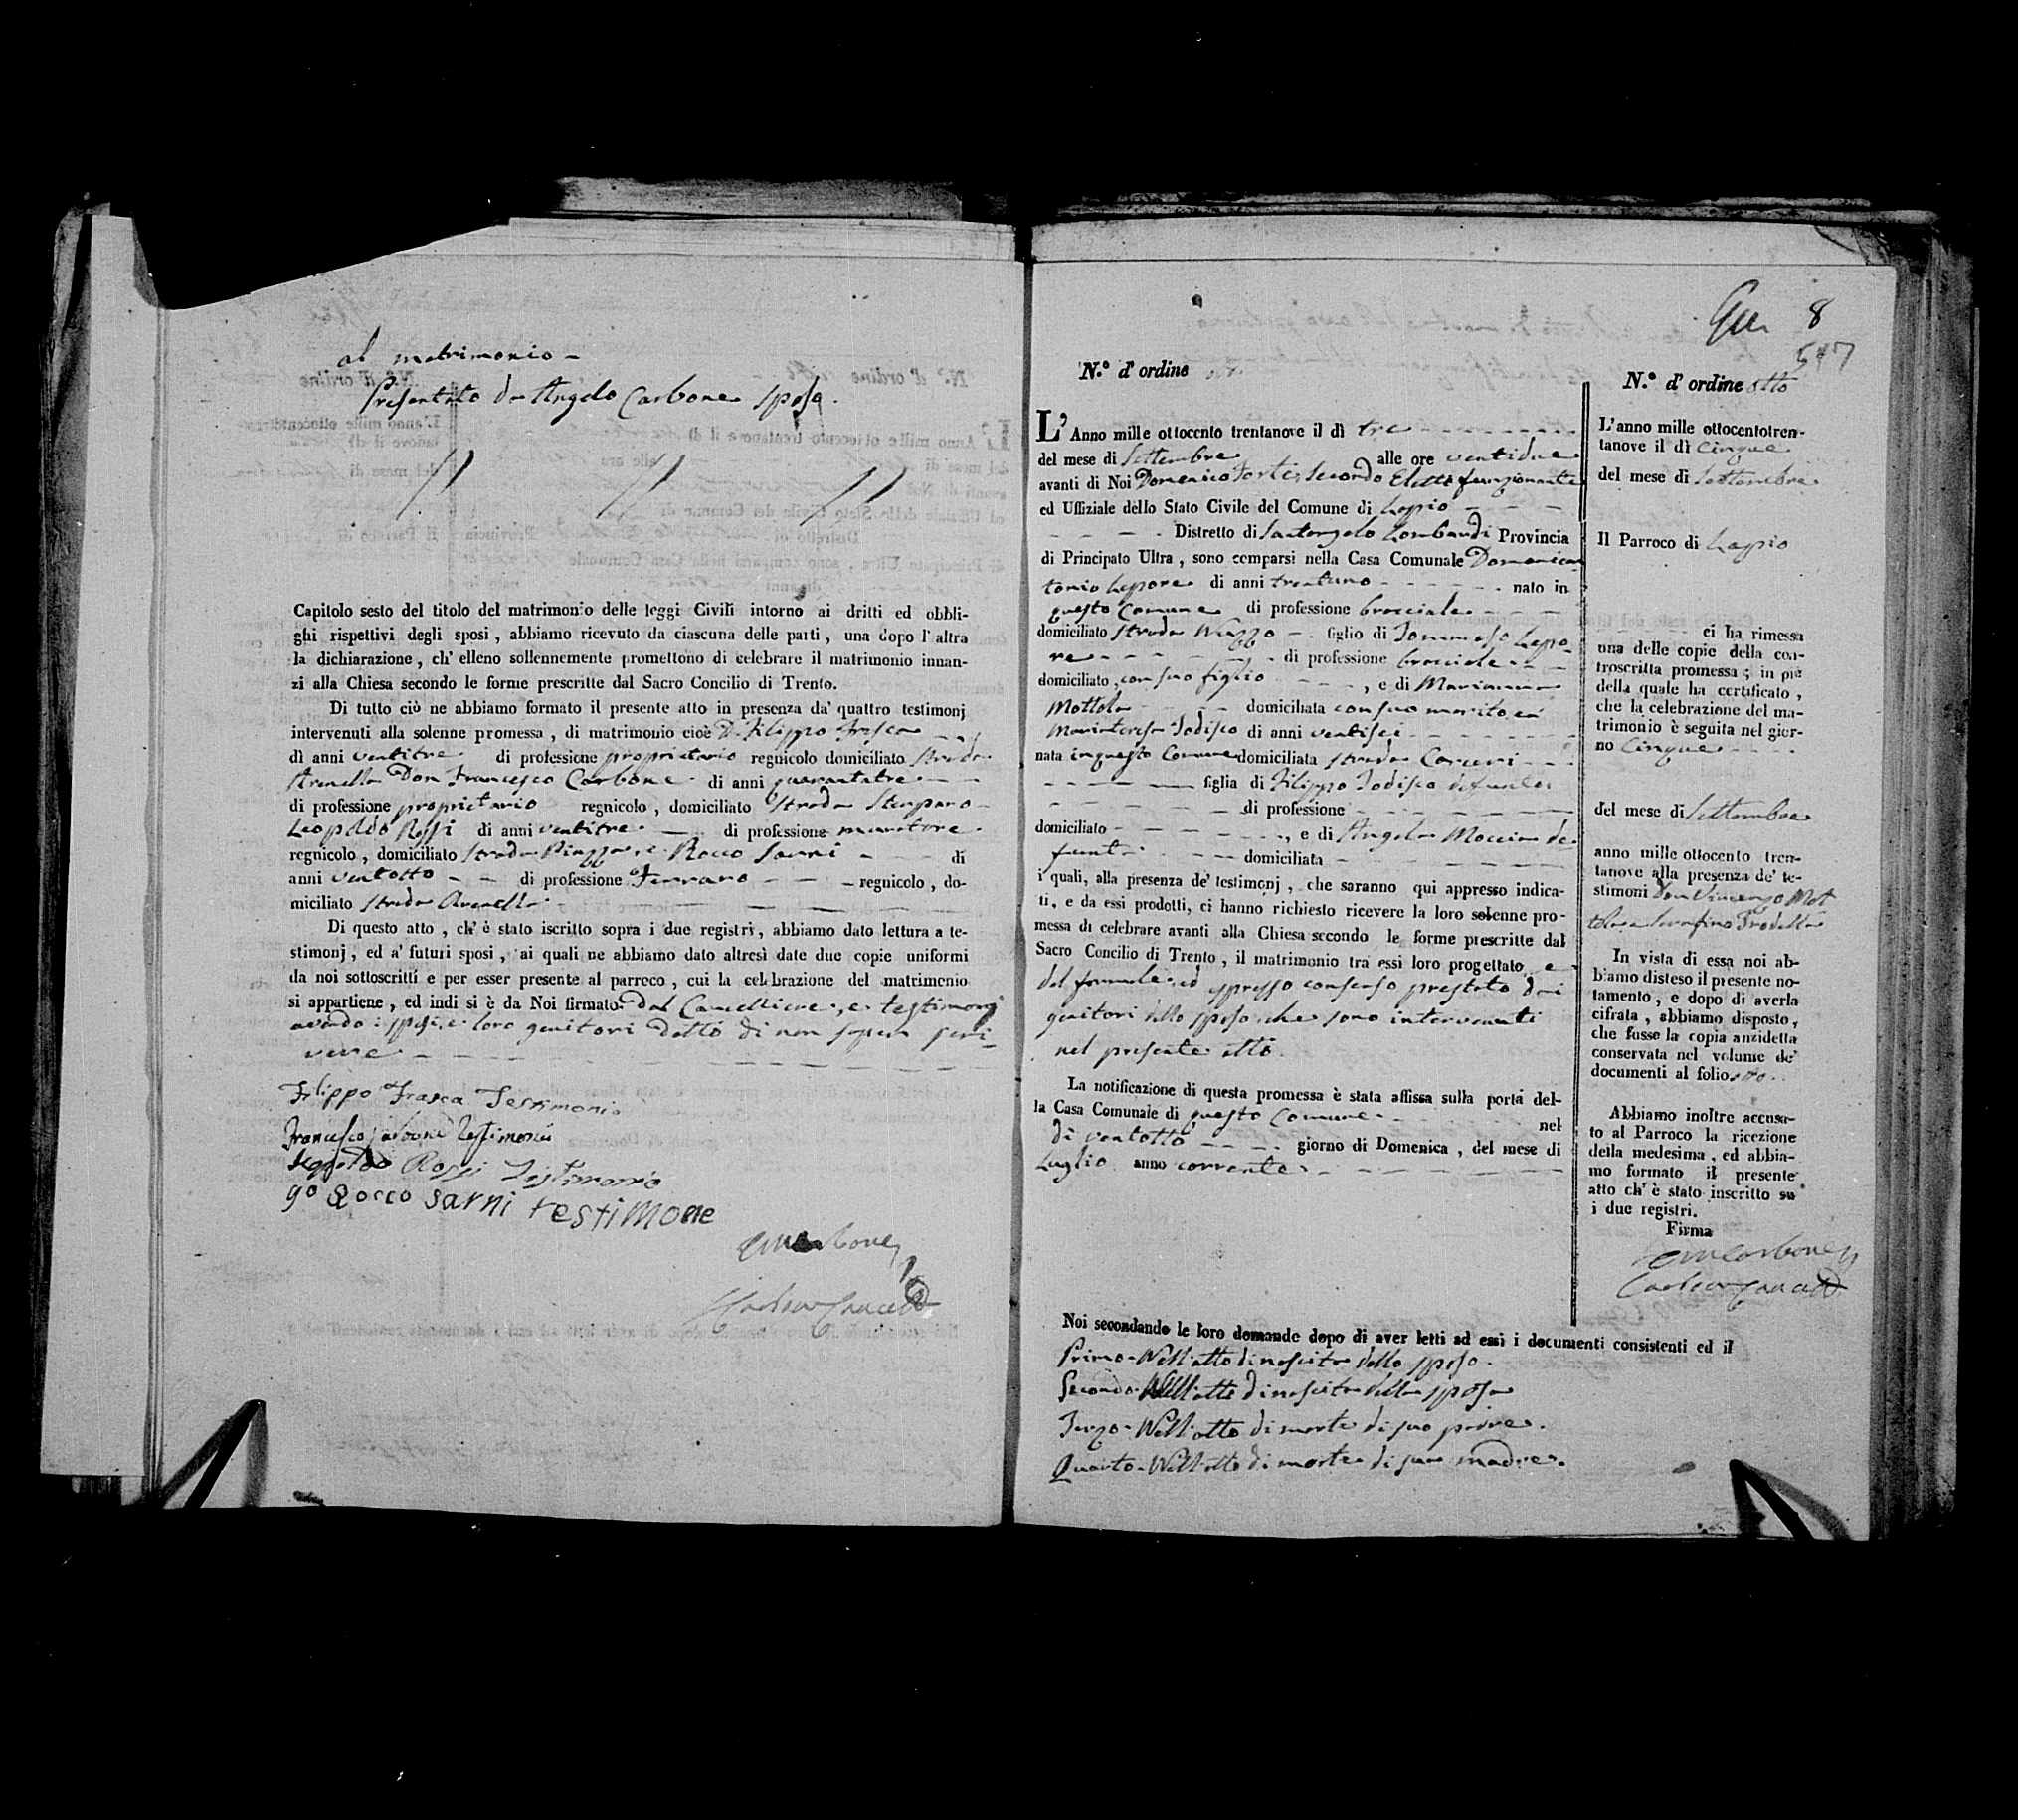 al matrimonio -
Presentato da Angelo Carbone sposo.
Capitolo sesto del titolo del matrimonio delle leggi Civili intorno ai dritti ed obbli-
ghi rispettivi degli sposi, abbiamo ricevuto da ciascuna delle parti, una dopo l'altra
la dichiarazione, ch'elleno sollennemente promettono di celebrare il matrimonio innan-
zi alla Chiesa secondo le forme prescritte dal Sacro Concilio di Trento.
Di tutto ciò ne abbiamo formato il presente atto in presenza da' quattro testimonj
intervenuti alla solenne promessa, di matrimonio cioè D. Filippo Frasca
di anni ventitre di professione proprietario regnicolo domiciliato strada
Avenella Don Francesco Carbone di anni quarantatre
di professione proprietario regnicolo, domiciliato strada
Leopoldo Rossi di anni ventitre di professione muratore
regnicolo, domiciliato strada Piazza, e Rocco Sarni di
anni ventotto di professione Ferraro regnicolo, do-
miciliato strada Avenella
Di questo atto, ch'è stato iscritto sopra i due registri, abbiamo dato lettura a te-
stimonj, ed a' futuri sposi, ai quali ne abbiamo dato altresì date due copie uniformi
da noi sottoscritti e per esser presente al parroco, cui la celebrazione del matrimonio
si appartiene, ed indi si è da Noi firmato dal Cancelliere, e testimonj
avendo i sposi, e loro genitori detto di non saper scri-
vere
Filippo Frasca Testimonio
Francesco Carbone Testimonio
Leopoldo Rossi Testimonio
Rocco Sarni testimone
8
517
N.° d'ordine
L'Anno mille ottocento trentanove il dì tre
del mese di Settembre alle ore ventidue
avanti di Noi Domenico Forte, Secondo Eletto funzionante
ed Uffiziale dello Stato Civile del Comune di Lapio
Distretto di Santangelo Lombardi Provincia
di Principato Ultra, sono comparsi nella Casa Comunale Domenican
tonio Lepore di anni trentuno nato in
questo Comune di professione bracciale
domiciliato strada figlio di Tommaso Lepo
re di professione bracciale
domiciliato, con suo figlio, e di Marianna
Mottola domiciliata con suo marito, ed
Mariateresa Iodisco di anni ventisei
nata in questo Comune domiciliata strada Carceri
figlia di Filippo Iodisco defunto
di professione
domiciliato, e di Angela Moccia de
funta domiciliata
i quali, alla presenza de' testimonj, che saranno qui appresso indica-
ti, e da essi prodotti, ci hanno richiesto ricevere la loro solenne pro-
messa di celebrare avanti alla Chiesa secondo le forme prescritte dal
Sacro Concilio di Trento, il matrimonio tra essi loro progettato e
del formale ed espresso consenso prestato dai
genitori dello sposo che sono intervenuti
nel presente atto.
La notificazione di questa promessa è stata affissa sulla porta del-
la Casa Comunale di questo Comune nel
dì ventotto giorno di Domenica, del mese di
Luglio anno corrente
N.° d'ordine otto
L'anno mille ottocentotren-
tanove il dì cinque
del mese di Settembre
Il Parroco di Lapio
ci ha rimessa
una delle copie della con-
troscritta promessa; in piè
della quale ha certificato,
che la celebrazione del ma-
trimonio è seguita nel gior-
no cinque
del mese di Settembre
anno mille ottocento tren-
tanove alla presenza de' te-
stimoni Don Vincenzo Mot
tola e Serafino
In vista di essa noi ab-
biamo disteso il presente no-
tamento, e dopo di averla
cifrata, abbiamo disposto,
che fosse la copia anzidetta
conservata nel volume de'
documenti al folio otto
Abbiamo inoltre accusa-
to al Parroco la ricezione
della medesima, ed abbia-
mo formato il presente
atto ch'è stato inscritto su
i due registri.
Firma
Noi secondando le loro domande dopo di aver letti ad essi i documenti consistenti ed il
Primo - Nell'atto di nascita dello sposo.
Secondo - Nell'atto di nascita della sposa
Terzo - Nell'atto di morte di suo padre.
Quarto - Nell'atto di morte di sua madre.